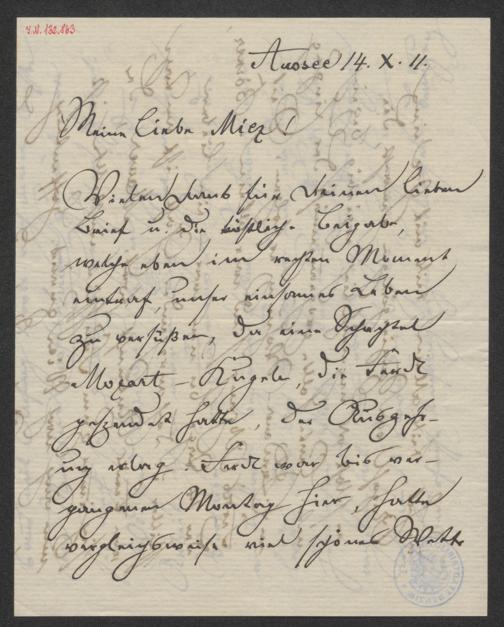 I.N. 132.863
Aussee 14. X. 11.
Meine liebe Miez!
Vielen Dank für Deinen lieben
Brief u. die köstliche Beigabe,
welche eben im rechten Moment
eintraf unser einsames Leben
zu versüßen, da eine Schachtel
Mozart-Kugeln, die Ferdl
gesendet hatte, der
erlag. Ferdl war bis ver-
gangenen Montag hier, hatte
vergleichsweise viel schönes Wetter